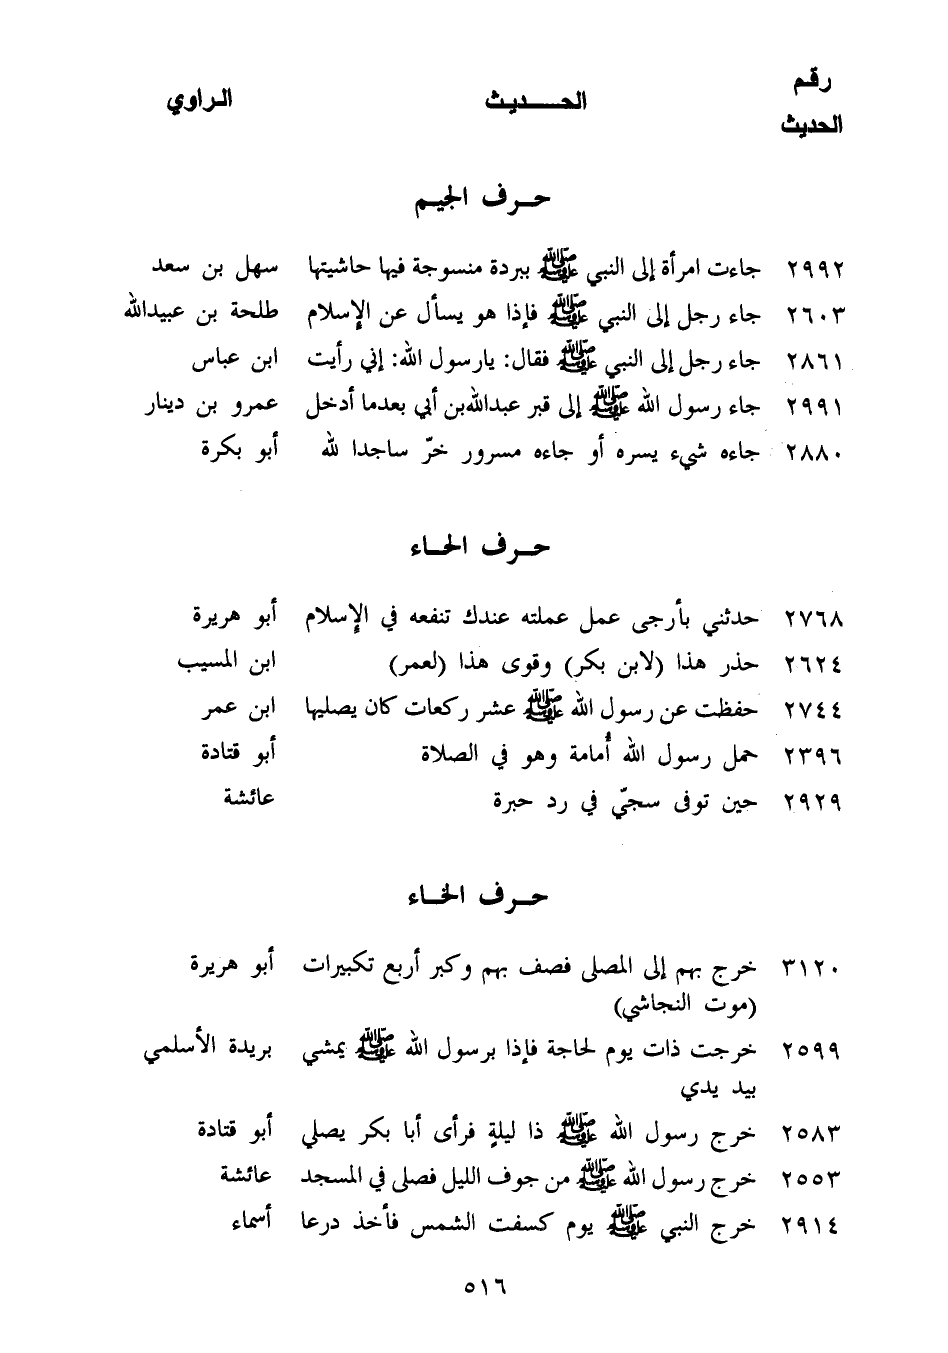 رقم الحديث الحـــديث الراوي
حـرف الجيـم
٢٩٩٢ جاءت امرأة إلى النبي ﷺ ببردة منسوجة فيها حاشيتها سهل بن سعد
٢٦٠٣ جاء رجل إلى النبي ﷺ فإذا هو يسأل عن الإسلام طلحة بن عبيدالله
٢٨٦١ جاء رجل إلى النبي ﷺ فقال: يارسول الله: إني رأيت ابن عباس
٢٩٩١ جاء رسول الله ﷺ إلى قبر عبدالله بن أبي بعدما أدخل عمرو بن دينار
٢٨٨٠ جاءه شيء يسره أو جاءه مسرور خرّ ساجدا لله أبو بكرة
حـرف الحـاء
٢٧٦٨ حدثني بأرجى عمل عملته عندك تنفعه في الإسلام أبو هريرة
٢٦٢٤ حذر هذا (لابن بكر) وقوى هذا (لعمر) ابن المسيب
٢٧٤٤ حفظت عن رسول الله ﷺ عشر ركعات كان يصليها ابن عمر
٢٣٩٦ حمل رسول الله أُمامة وهو في الصلاة أبو قتادة
٢٩٢٩ حين توفى سجيّ في رد حبرة عائشة
حـرف الخـاء
٣١٢٠ خرج بهم إلى المصلى فصف بهم وكبر أربع تكبيرات أبو هريرة
(موت النجاشي)
٢٥٩٩ خرجت ذات يوم لحاجة فإذا برسول الله ﷺ يمشي بريدة الأسلمي
بيد يدي
٢٥٨٣ خرج رسول الله ﷺ ذا ليلةٍ فرأى أبا بكر يصلي أبو قتادة
٢٥٥٣ خرج رسول الله ﷺ من جوف الليل فصلى في المسجد عائشة
٢٩١٤ خرج النبي ﷺ يوم كسفت الشمس فأخذ درعا أسماء
٥١٦